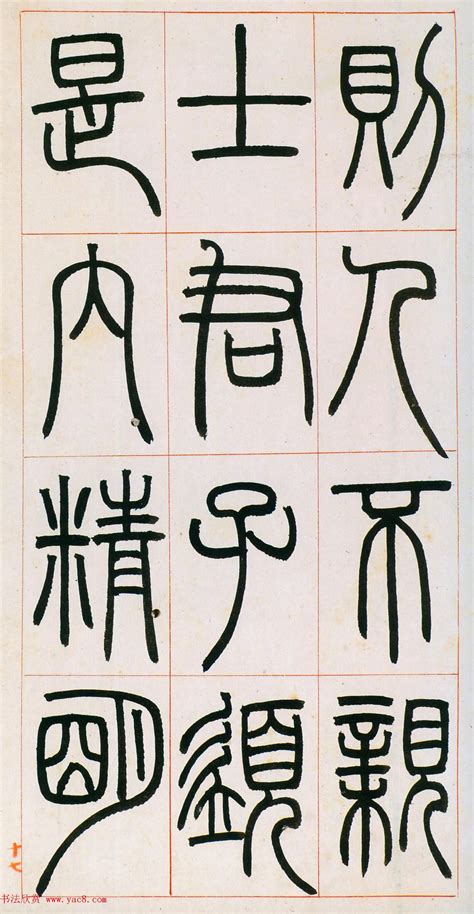 則人不親
士君子須
是內精明
十七
书法欣赏 www.yac8.com